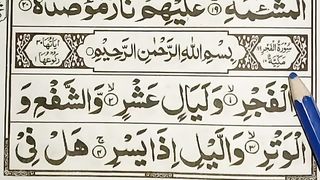 الْمَشْـَٔمَةِ ۝۱۹ عَلَيْهِمْ نَارٌ مُّؤْصَدَةٌ ۝۲۰
سُوْرَةُ الْفَجْرِ مَكِّيَّةٌ بِسْمِ اللّٰهِ الرَّحْمٰنِ الرَّحِيْمِ اٰيَاتُهَا ۳۰ رُكُوْعُهَا
الْفَجْرِ ۝۱ وَلَيَالٍ عَشْرٍ ۝۲ وَّالشَّفْعِ وَ
الْوَتْرِ ۝۳ وَالَّيْلِ اِذَا يَسْرِ ۝۴ هَلْ فِىْ